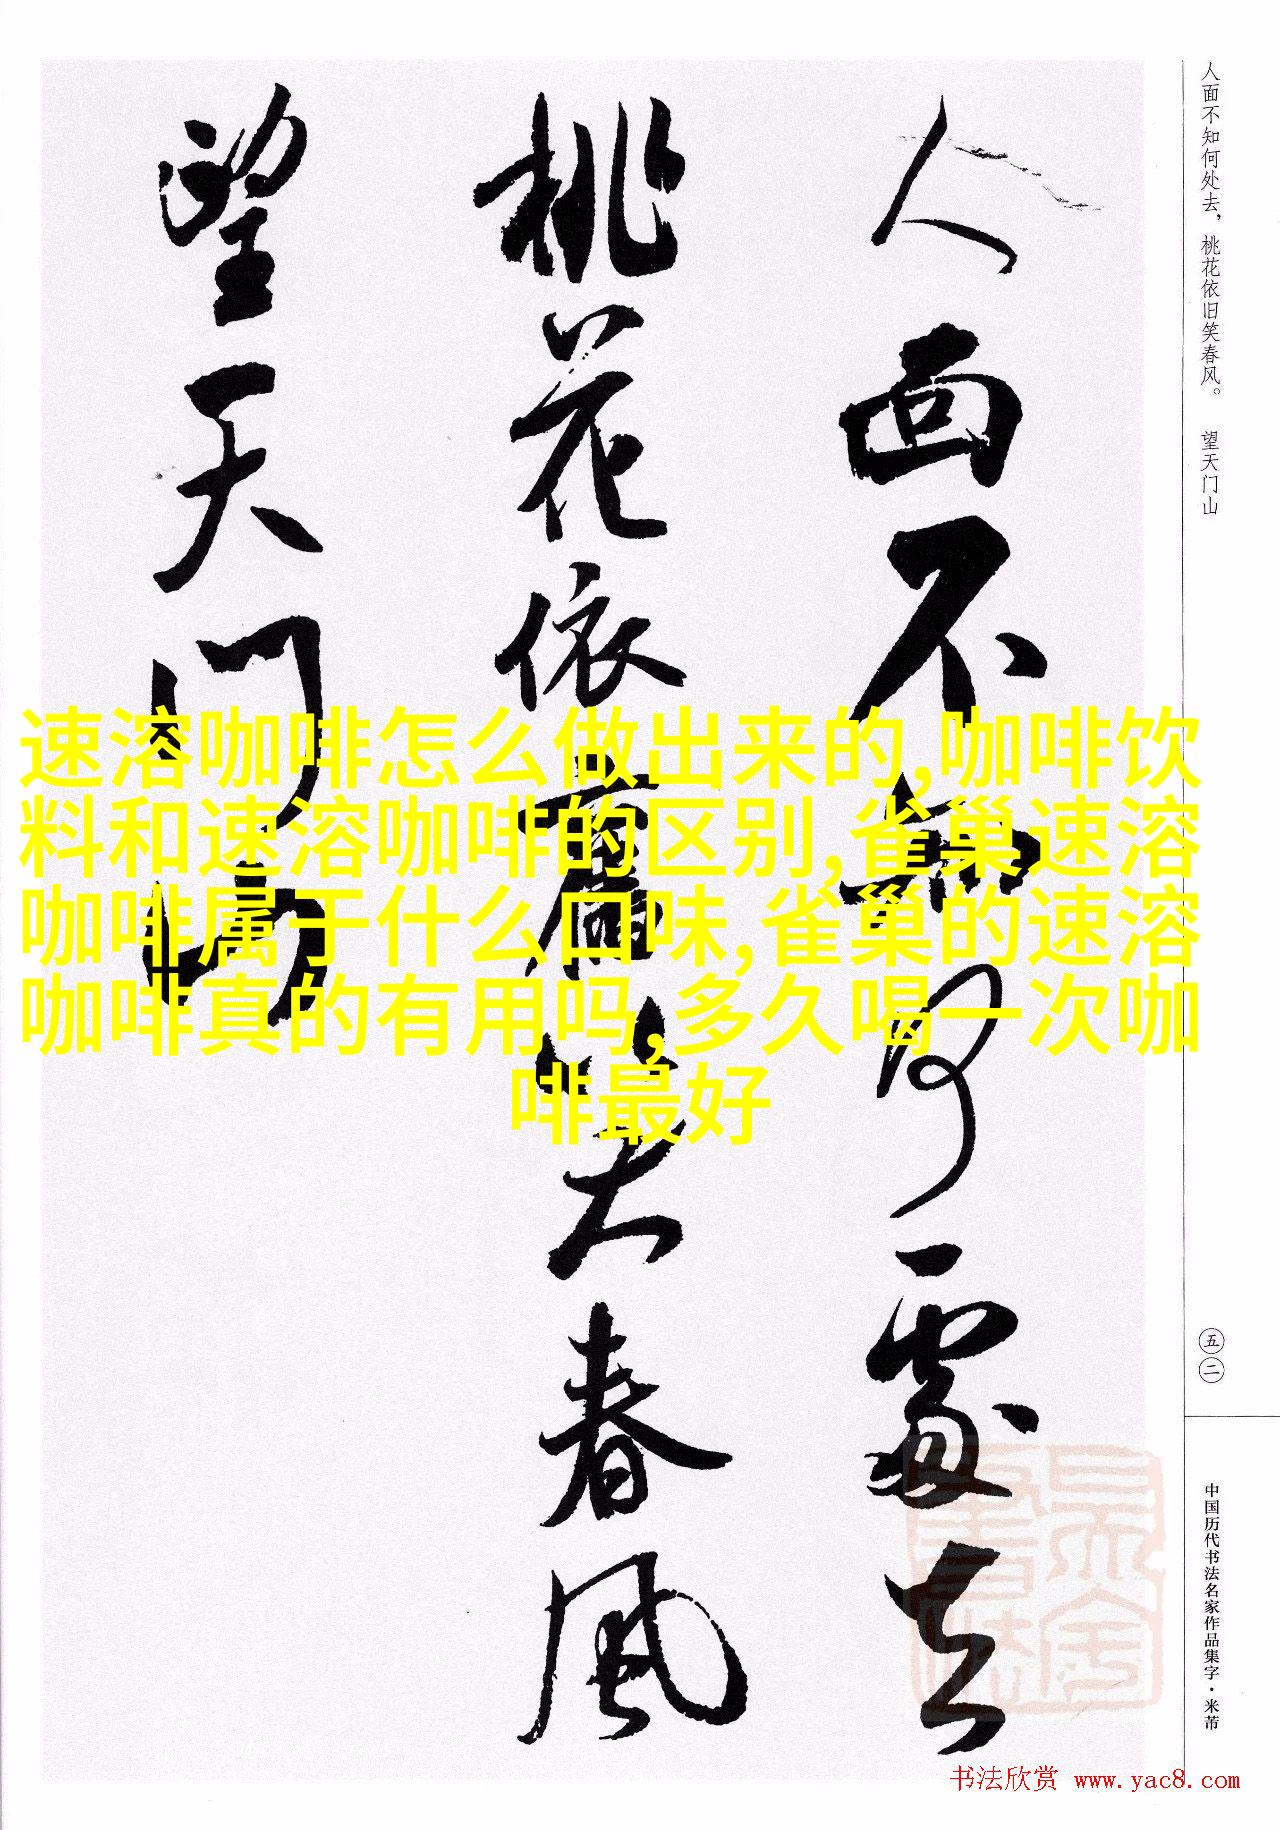 人面不知何處去
桃花依舊笑春風
望天門山
人面不知何处去，桃花依旧笑春风。 望天门山
速溶咖啡怎么做出来的,咖啡饮
料和速溶咖啡的区别,雀巢速溶
咖啡属于什么口味,雀巢的速溶
咖啡真的有用吗,多久喝一次咖
啡最好
五二
中国历代书法名家作品集字·米芾
书法欣赏 www.yac8.com